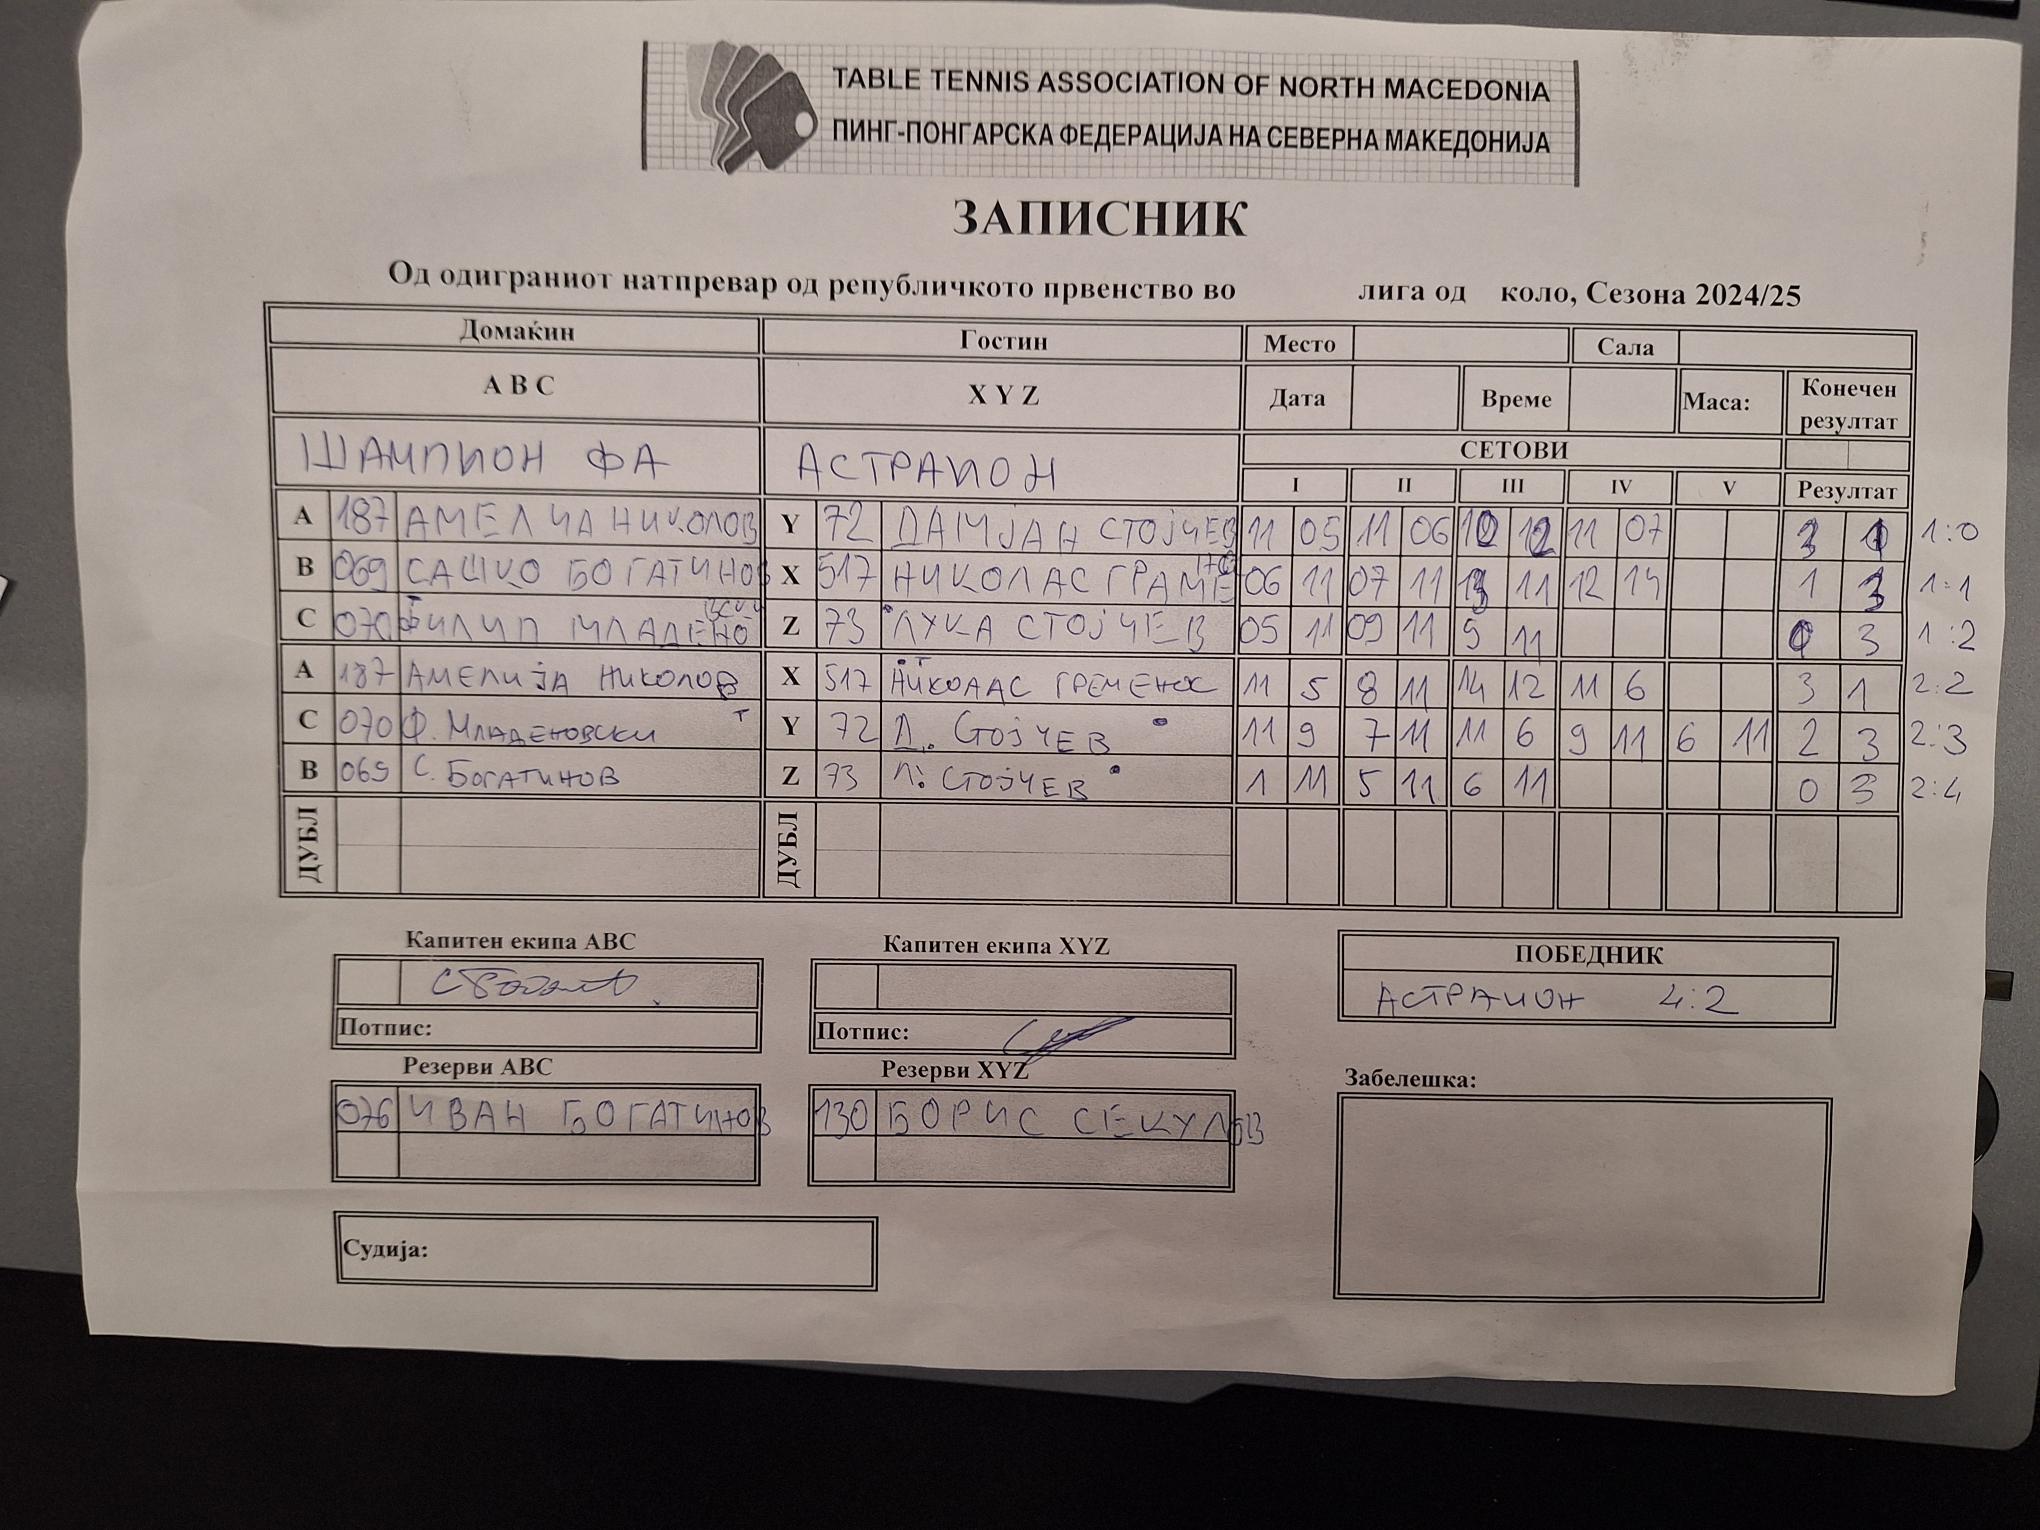 TABLE TENNIS ASSOCIATION OF NORTH MACEDONIA
ПИНГ-ПОНГАРСКА ФЕДЕРАЦИЈА НА СЕВЕРНА МАКЕДОНИЈА
ЗАПИСНИК
Од одиграниот натпревар од републичкото првенство во лига од коло, Сезона 2024/25
Домаќин Гостин Место Сала
A B C X Y Z Дата Време Маса: Конечен резултат
ШАМПИОН ФА АСТРАИОН СЕТОВИ
I II III IV V Резултат
A 187 АМЕЛИА НИКОЛОВ Y 72 ДАМЈАН СТОЈЧЕВ 11 05 11 06 10 12 11 07 3 1 1:0
B 069 САШКО БОГАТИНОВ X 517 НИКОЛАС ГРАМЕНОС 06 11 07 11 13 11 12 14 1 3 1:1
C 070 ФИЛИП МЛАДЕНОВСКИ Z 73 ЛУКА СТОЈЧЕВ 05 11 09 11 9 11 0 3 1:2
A 187 АМЕЛИЈА НИКОЛОВ X 517 НИКОЛАС ГРЕМЕНОС 11 5 8 11 14 12 11 6 3 1 2:2
C 070 Ф. МЛАДЕНОВСКИ Т Y 72 Д. СТОЈЧЕВ 11 9 7 11 11 6 9 11 6 11 2 3 2:3
B 069 С. БОГАТИНОВ Z 73 Л. СТОЈЧЕВ 1 11 5 11 6 11 0 3 2:4
ДУБЛ ДУБЛ
Капитен екипа ABC Капитен екипа XYZ ПОБЕДНИК
АСТРАИОН 4:2
Потпис: Потпис:
Резерви ABC Резерви XYZ Забелешка:
076 ИВАН БОГАТИНОВ 130 БОРИС СЕКУЛОВ
Судија: